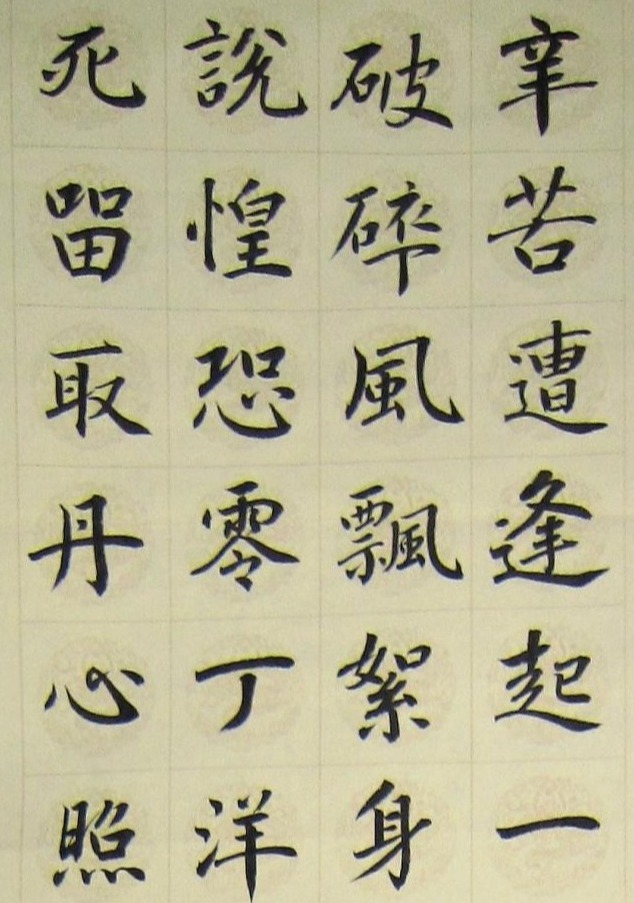 辛苦遭逢起一
破碎風飄絮身
說惶恐零丁洋
死留取丹心照